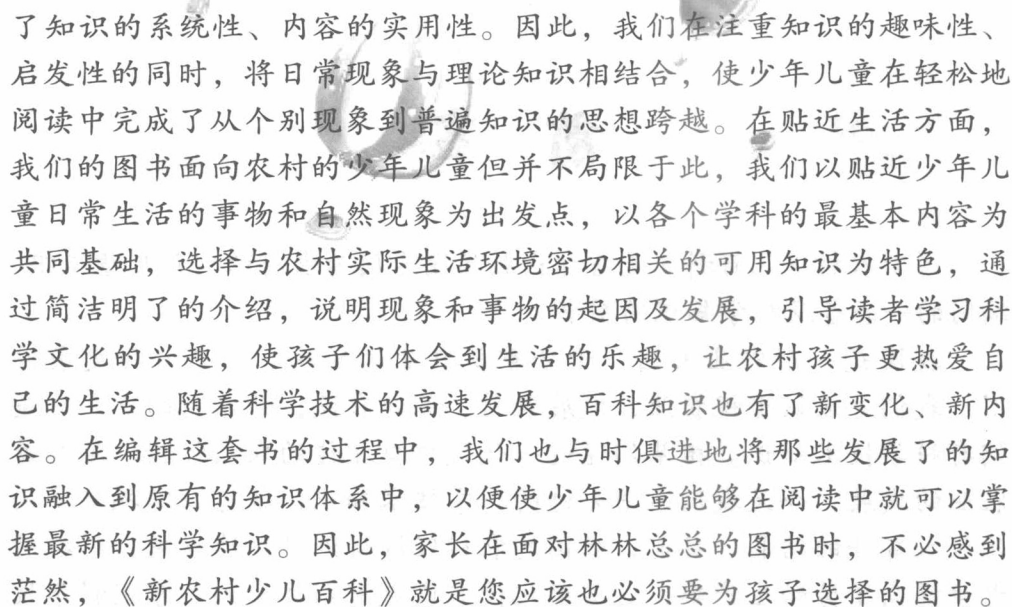 了知识的系统性、内容的实用性。因此，我们在注重知识的趣味性、
启发性的同时，将日常现象与理论知识相结合，使少年儿童在轻松地
阅读中完成了从个别现象到普遍知识的思想跨越。在贴近生活方面，
我们的图书面向农村的少年儿童但并不局限于此，我们以贴近少年儿
童日常生活的事物和自然现象为出发点，以各个学科的最基本内容为
共同基础，选择与农村实际生活环境密切相关的可用知识为特色，通
过简洁明了的介绍，说明现象和事物的起因及发展，引导读者学习科
学文化的兴趣，使孩子们体会到生活的乐趣，让农村孩子更热爱自
己的生活。随着科学技术的高速发展，百科知识也有了新变化、新内
容。在编辑这套书的过程中，我们也与时俱进地将那些发展了的知
识融入到原有的知识体系中，以便使少年儿童能够在阅读中就可以掌
握最新的科学知识。因此，家长在面对林林总总的图书时，不必感到
茫然，《新农村少儿百科》就是您应该也必须要为孩子选择的图书。